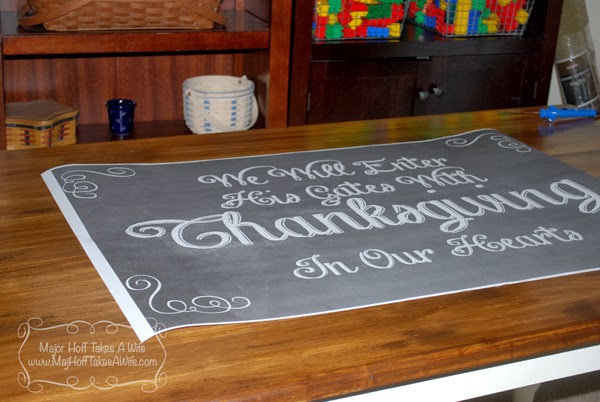 We Will Enter
His Gates With
Thanksgiving
In Our Hearts
Major Hoff Takes A Wife
www.MajHoffTakesAWife.com